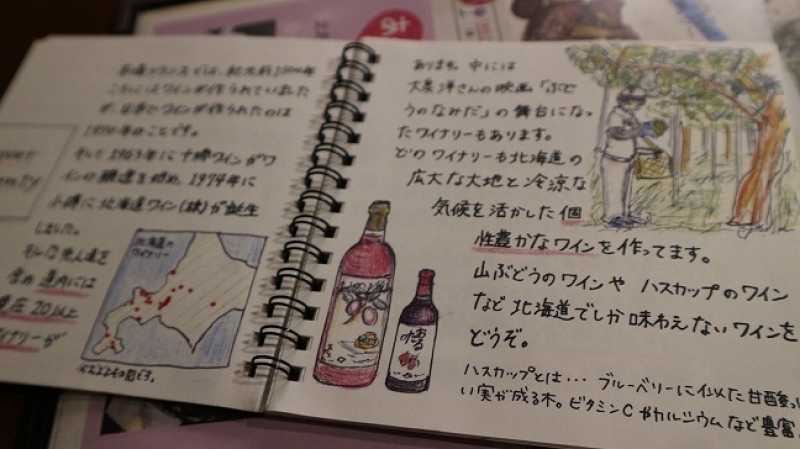 本場フランスでは、紀元前1500年
ころにはワインが作られていました
が、日本でワインが作られたのは
1870年のことです。
そして1963年に十勝ワインがワ
インの醸造を始め、1974年に
小樽に北海道ワイン(株)が誕生
しました。
そんな先人達を
含め道内には
現在20以上
ワイナリーが
北海道の
ワイナリー
※おおよその図です。
あります。中には
大泉洋さんの映画「ぶど
うのなみだ」の舞台になっ
たワイナリーもあります。
どのワイナリーも北海道の
広大な大地と冷涼な
気候を活かした個
性豊かなワインを作ってます。
山ぶどうのワインや ハスカップのワイン
など北海道でしか味わえないワインを
どうぞ。
ハスカップとは… ブルーベリーに似た甘酸っ
い実が成る木。ビタミンCやカルシウムなど豊富
9+